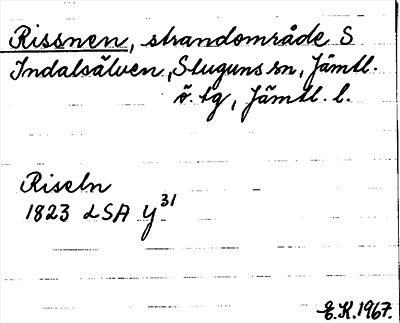 Rissnen, strandområde S
Indalsälven, Stuguns sn, Jämtl.
ö. tg, Jämtl. l.
Riseln
1823 LSA Y³¹
E.K.1967.